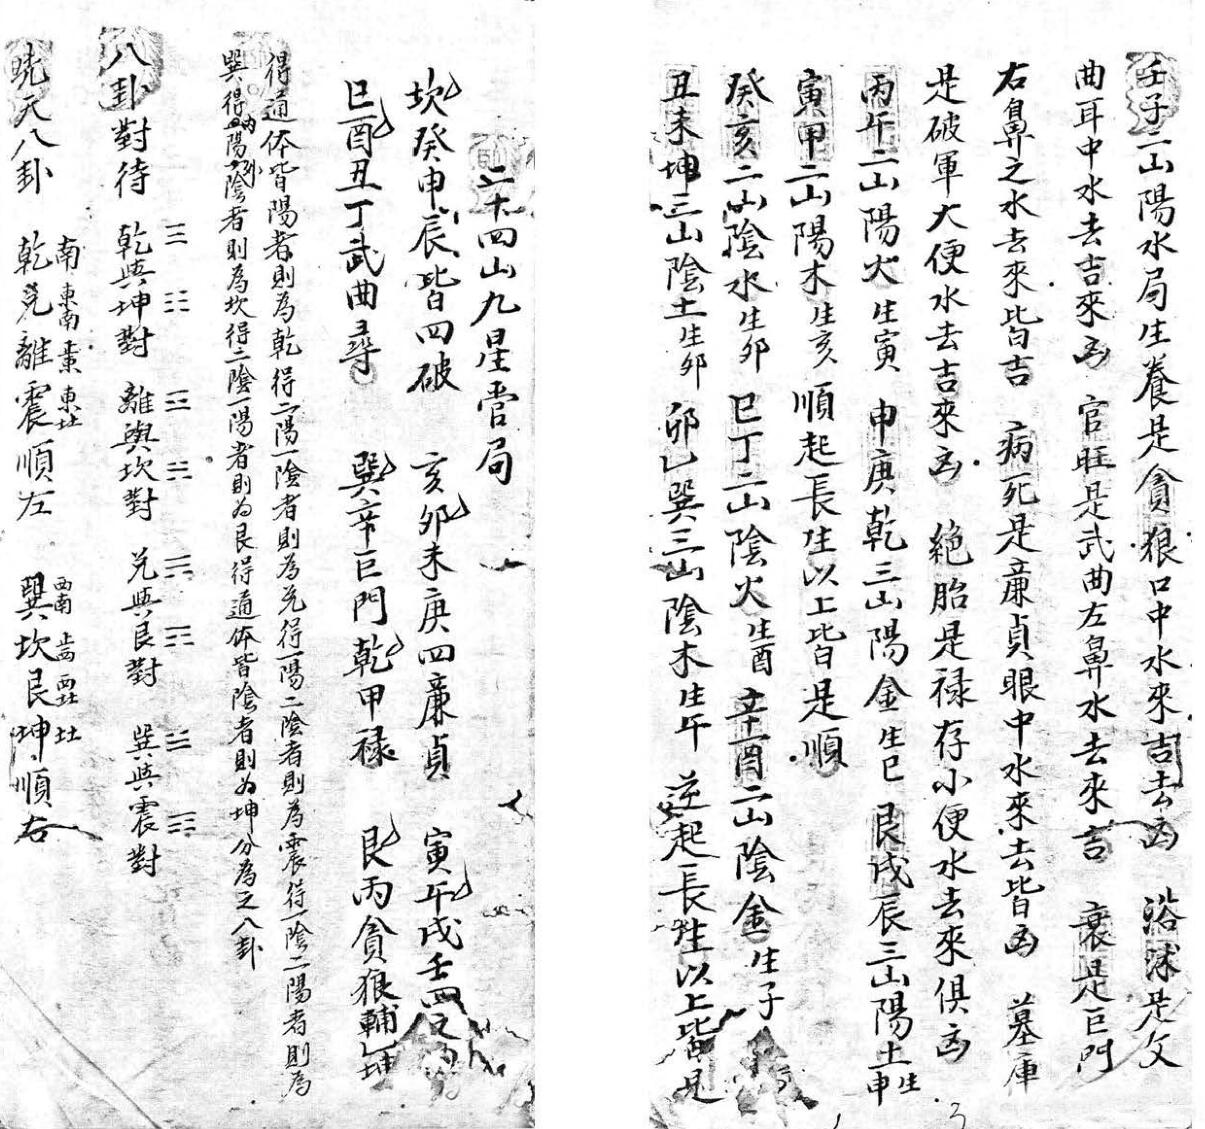 壬子二山陽水局生養是貪狼口中水來吉去凶　浴沐是文
曲耳中水去吉來凶　官旺是武曲左鼻水去來吉　衰是巨門
右鼻之水去來皆吉　病死是亷貞眼中水來去皆凶　墓庫
是破軍大便水去吉來凶　絕胎是祿存小便水去來俱凶
丙午二山陽火生寅　申庚乾三山陽金生巳　艮戌辰三山陽土生申
寅甲二山陽木生亥　順起長生以上皆是順
癸亥二山陰水生卯　巳丁二山陰火生酉　辛酉二山陰金生子
丑未坤三山陰土生卯　卯乙巽三山陰木生午　逆起長生以上皆是
二十四山九星當局
坎癸申辰皆四破　亥卯未庚四亷貞　寅午戌壬四文
巳酉丑丁武曲尋　巽辛巨門乾甲祿　艮丙貪狼輔乙坤
得通体皆陽者則為乾得二陽一陰者則為兌得一陽二陰者則為震得一陰二陽者則為
巽得內陽外陰者則為坎得二陰一陽者則为艮得通体皆陰者則为坤分為之八卦
八卦對待　乾與坤對　☰　☷　離與坎對　☲　☵　兌與艮對　☱　☶　巽與震對　☴　☳
八卦　乾兌離震順左　南　東南　東　東北　巽坎艮坤順右　西南